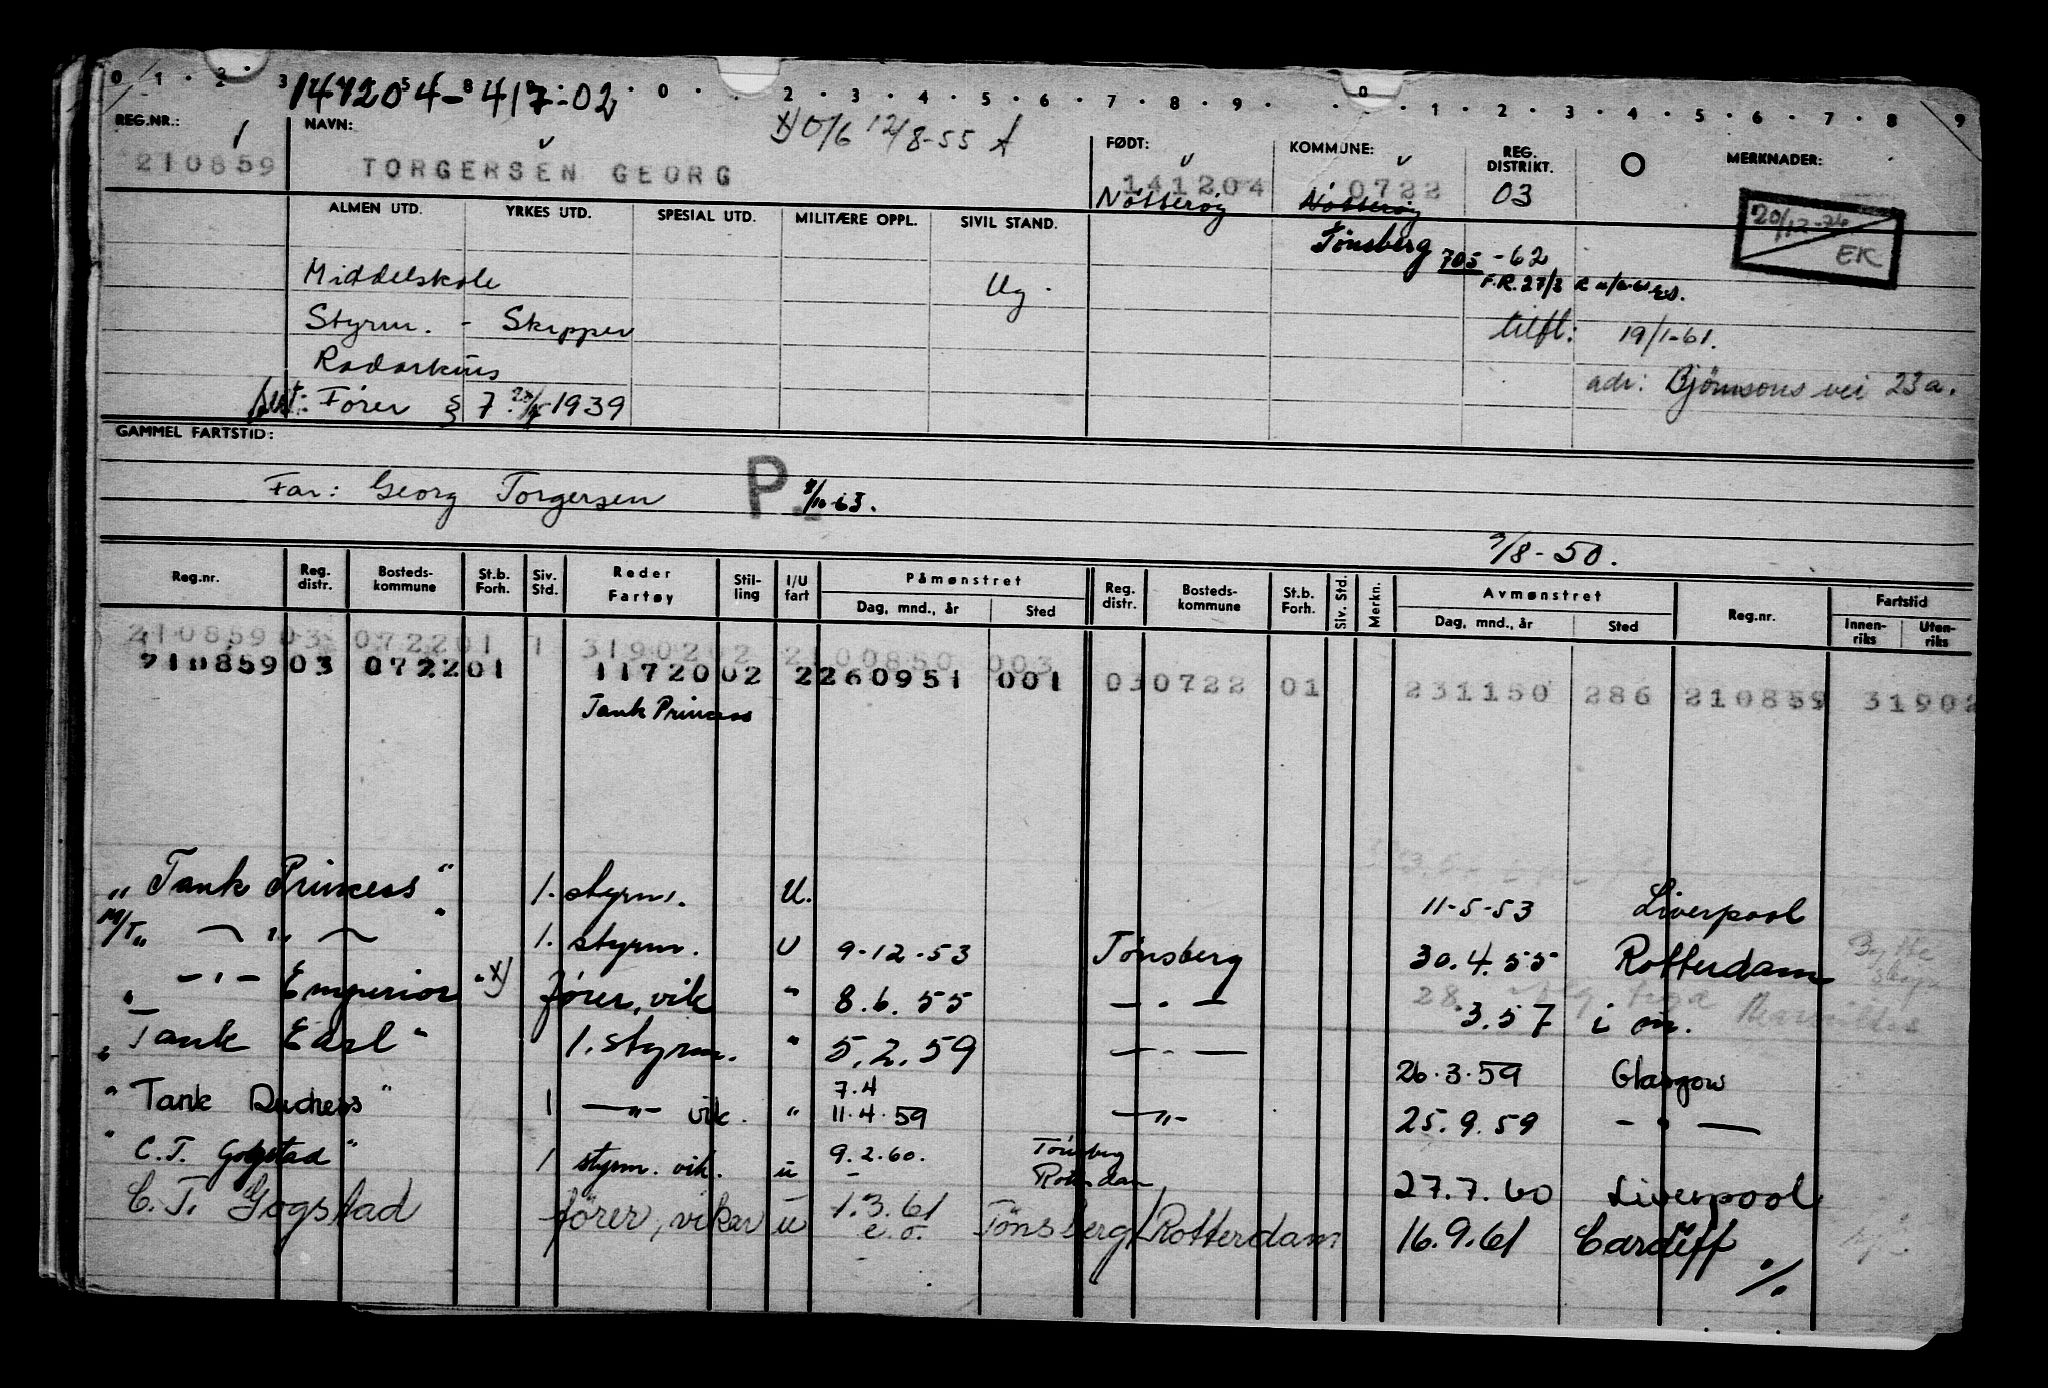 0 1 2 3 5 8 0 2 3 4 5 6 7 8 9 0 1 2 3 4 5 6 7 8 9
141204-417-02
REG.NR.: 1 NAVN: x) O/6 12/8-55 A FØDT: KOMMUNE: REG. DISTRIKT. O MERKNADER:
210859 TORGERSEN GEORG 141204 0722 03
Nøtterøy Nøtterøy
ALMEN UTD. YRKES UTD. SPESIAL UTD. MILITÆRE OPPL. SIVIL STAND.
EK
Tønsberg 705 -62
Middelskole Ug.
F.R. 27/3
Styrm. - Skipper tilfl: 19/1-61.
Radarkurs adr: Bjørnsons vei 23a.
Sert: Fører § 7 1939
GAMMEL FARTSTID:
Far: Georg Torgersen P 8/10-63.
9/8-50.
Reg.nr. Reg. distr. Bosteds-kommune St.b. Forh. Siv. Std. Reder Fartøy Stil-ling I/U fart Påmønstret Reg. distr. Bosteds-kommune St.b. Forh. Siv. Std. Merkn. Avmønstret Reg.nr. Fartstid
Dag, mnd., år Sted Dag, mnd., år Sted Innen-riks Uten-riks
210859 03 0722 01 1 31902 02 2100850 003
210859 03 0722 01 11720 02 2260951 001 03 0722 01 231150 286 210859 31902
Tank Princess
„Tank Princess" 1. styrm. U. 11-5-53 Liverpool
M/T „ — „ — " 1. styrm. U 9-12-53 Tønsberg 30.4.55 Rotterdam Bytte skip
„ —"— Emperior" x) fører, vik " 8.6.55 — " — 28. 3.57 i on.
„Tank Earl" 1. styrm. " 5.2.59 — " — 26.3.59 Glasgow
7.4
" Tank Duchess" 1 —"— vik. " 11.4.59 —"— 25.9.59 — " —
" C.T. Gogstad" 1 styrm. vik. u 9.2.60. Tønsberg Rotterdam 27.7.60 Liverpool
C.T. Gogstad fører, vikar u 1.3.61 e.o. Tønsberg/Rotterdam 16.9.61 Cardiff
·/.